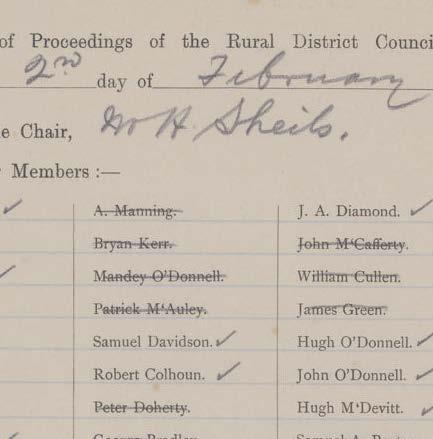 of Proceedings of the Rural District Counci
2nd day of February
e Chair, W H Sheils.
r Members :—
A. Manning. J. A. Diamond. ✓
Bryan Kerr. John M‘Cafferty.
Mandey O’Donnell. William Cullen.
Patrick M‘Auley. James Green.
Samuel Davidson. ✓ Hugh O’Donnell. ✓
Robert Colhoun. ✓ John O’Donnell. ✓
Peter Doherty. Hugh M‘Devitt. ✓
George Bradley.